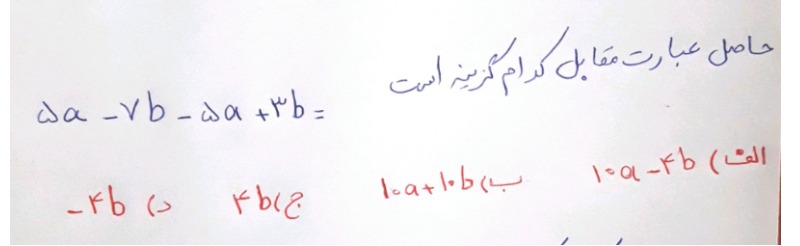 حاصل عبارت مقابل کدام گزینه است
۵a - ۷b - ۵a + ۳b =
الف) ۱۰a - ۴b ب) ۱۰a + ۱۰b ج) ۴b د) -۴b